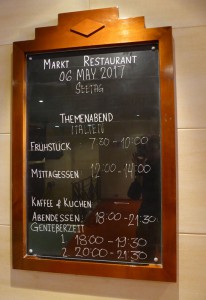 MARKT RESTAURANT
06 MAY 2017
SEETAG
THEMENABEND
ITALIEN
FRÜHSTÜCK 7:30 - 10:00
MITTAGESSEN 12:00 - 14:00
KAFFEE & KUCHEN
ABENDESSEN 18:00 - 21:30
GENIEßERZEIT
1. 18:00 - 19:30
2. 20:00 - 21:30